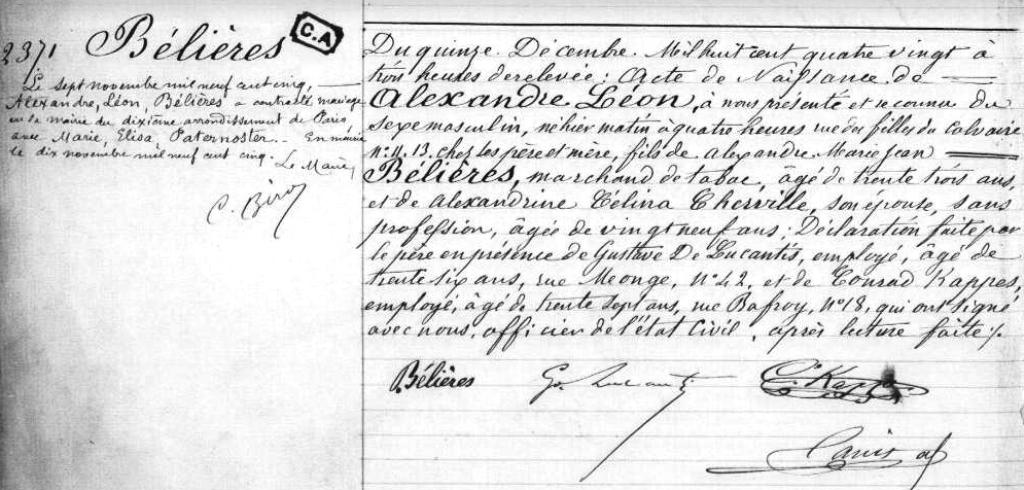 2371 Bélières
C.A
Le sept novembre mil neuf cent cinq,
Alexandre, Léon, Bélières a contracté mariage
en la mairie du dixième arrondissement de Paris,
avec Marie, Elisa Paternoster._ En mairie
le dix novembre mil neuf cent cinq.
Le Maire,
Du quinze Décembre Mil huit cent quatre vingt à
trois heures de relevée : Acte de Naissance de
Alexandre Léon, à nous présenté et reconnu du
sexe masculin, né hier matin à quatre heures rue des filles du Calvaire
n° 11.13. chez ses père et mère, fils de Alexandre Marie Jean
Bélières, marchand de tabac, âgé de trente trois ans,
et de Alexandrine Célina Cherville, son épouse, sans
profession, âgée de vingt neuf ans ; Déclaration faite par
le père en présence de Gustave De Lucantis, employé, âgé de
trente six ans, rue Meonge, N° 42, et de Conrad Kappes,
employé, âgé de trente sept ans, rue Bafroy, N° 18, qui ont signé
avec nous, officier de l'état Civil, après lecture faite ;.
Bélières